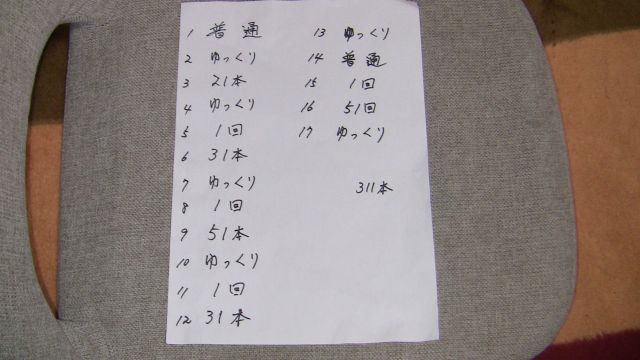 1 普通
2 ゆっくり
3 21本
4 ゆっくり
5 1回
6 31本
7 ゆっくり
8 1回
9 51本
10 ゆっくり
11 1回
12 31本
13 ゆっくり
14 普通
15 1回
16 51回
17 ゆっくり
311本